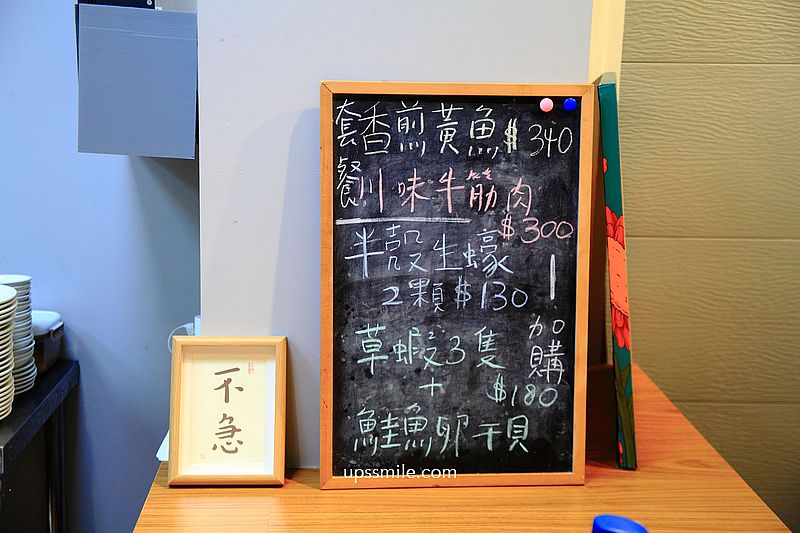 套餐
香煎黃魚 $340
川味牛筋肉
$300
半殼生蠔
2顆 $130
加購
草蝦3隻
+ $180
鮭魚卵干貝
不急
upssmile.com